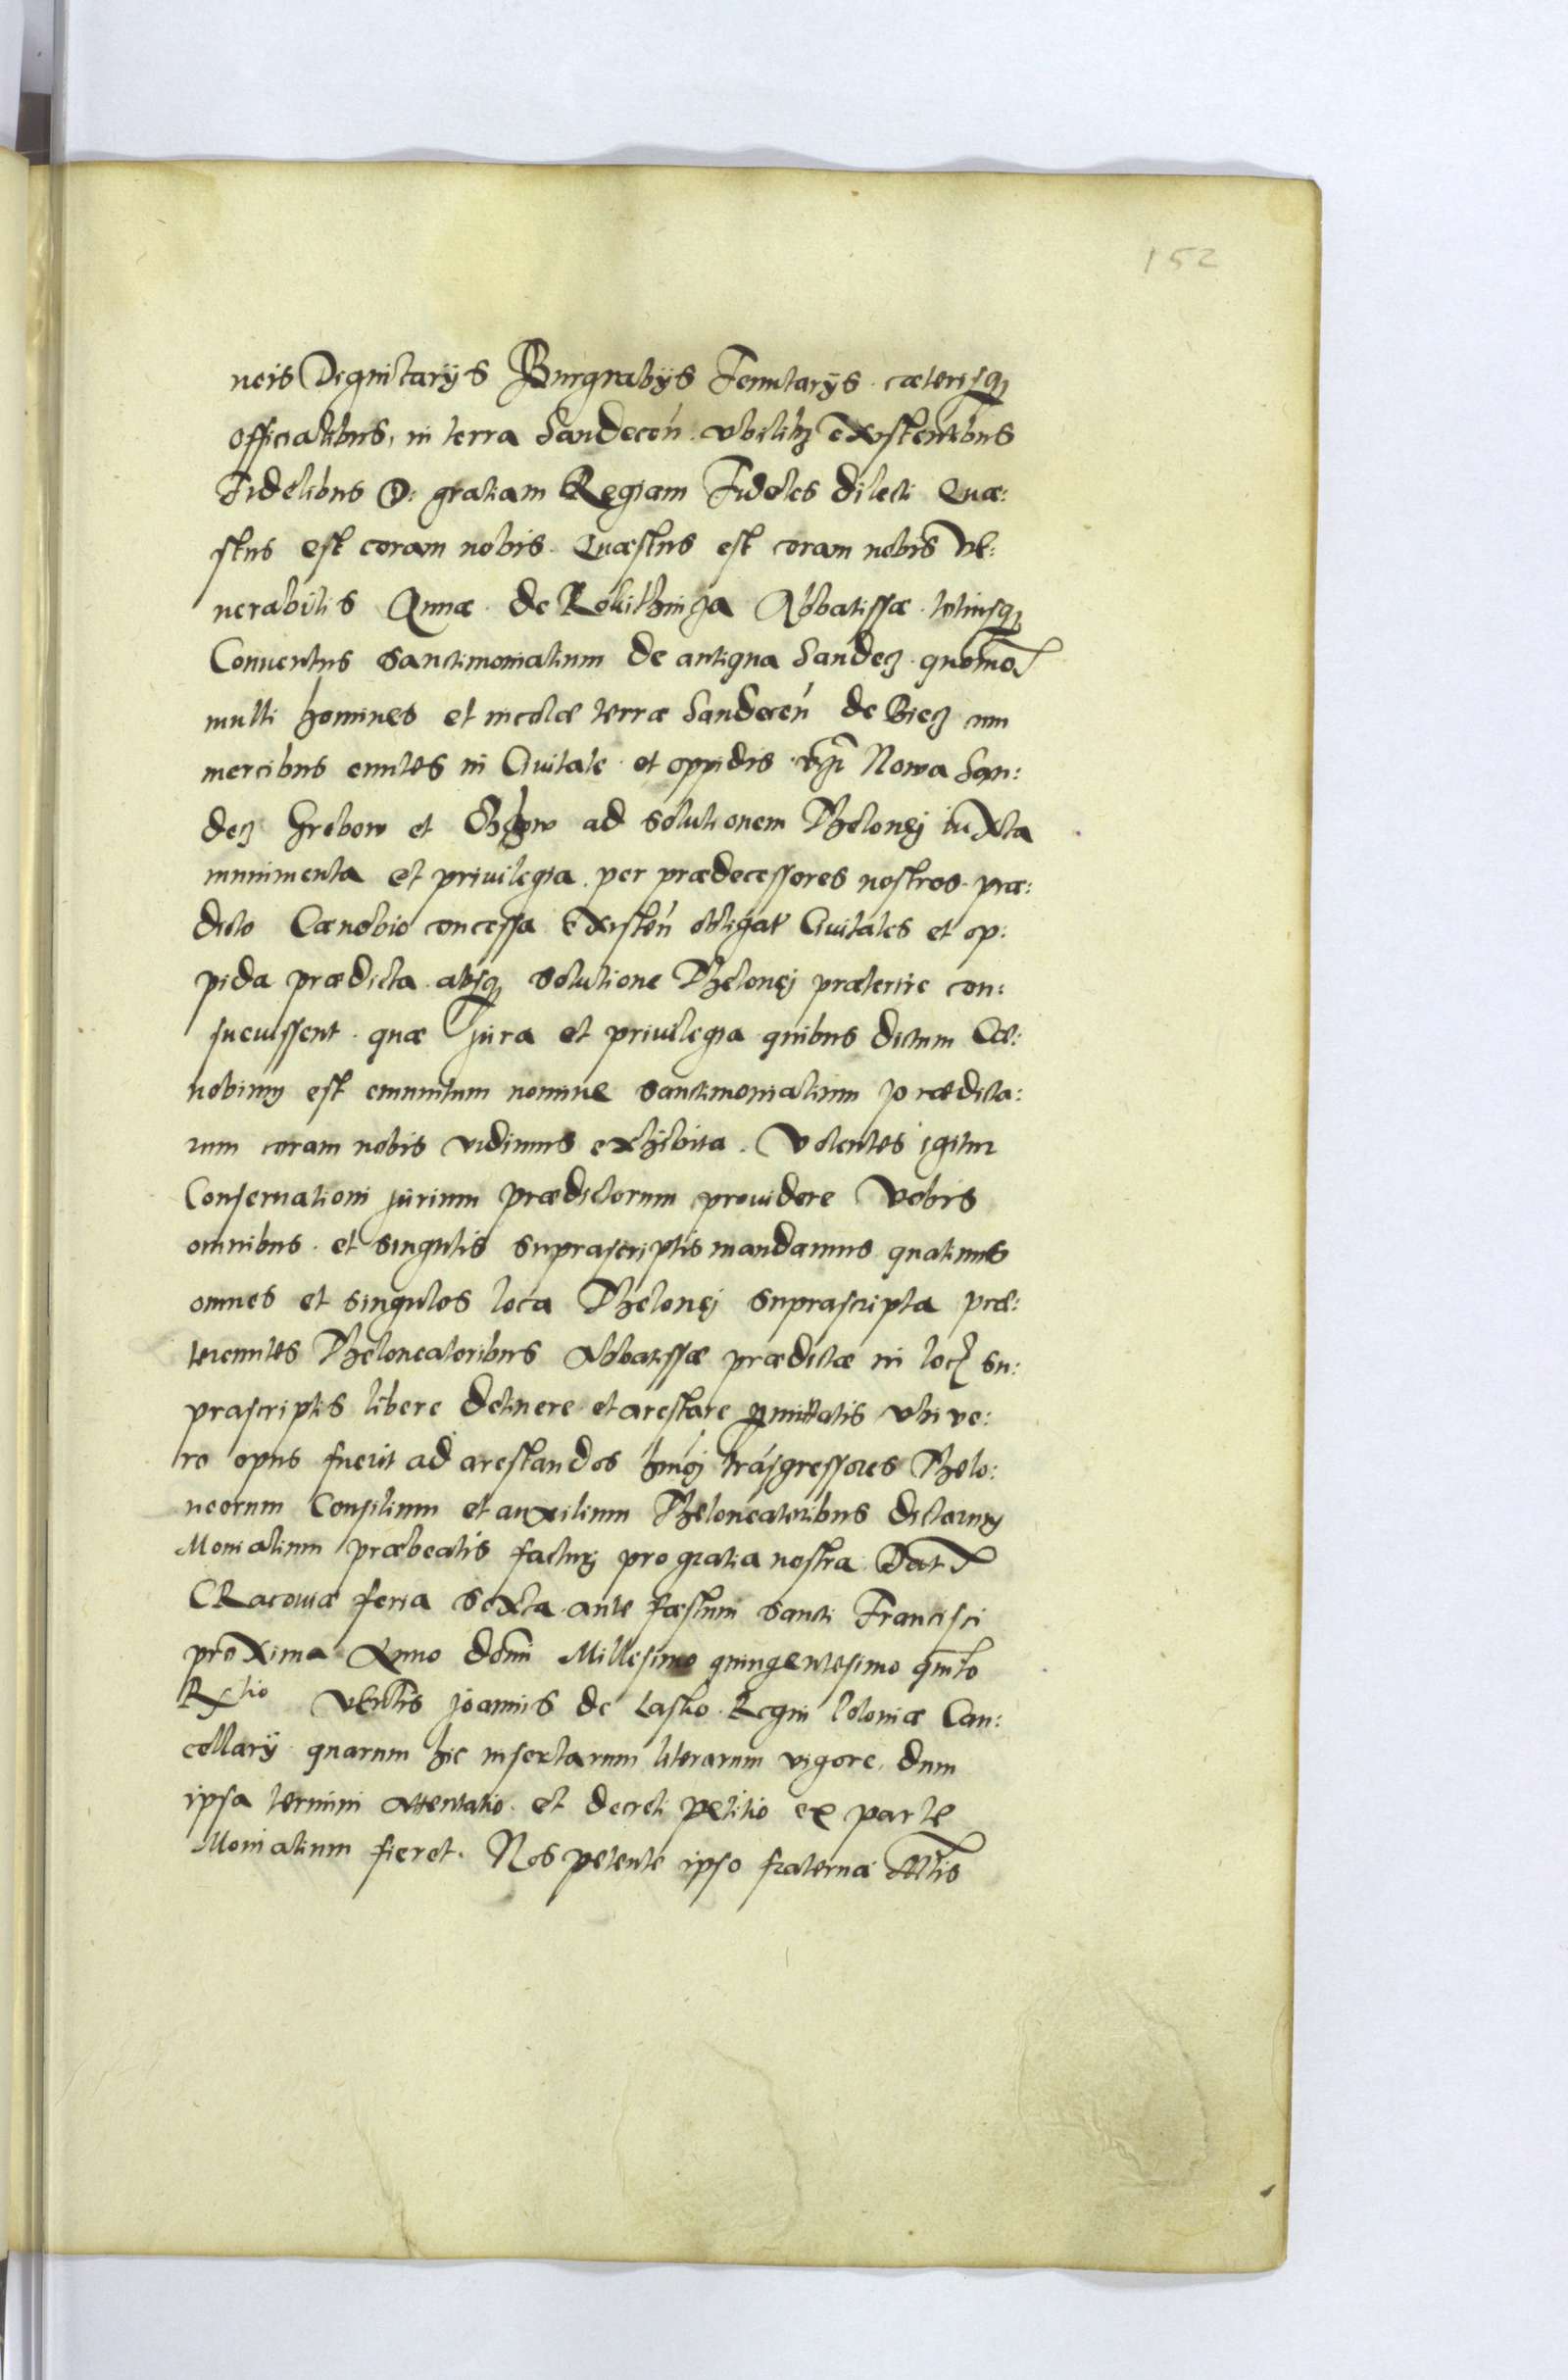 152
neis Dignitarijs Burgrabijs Tenutarijs cæterisq3
officialibus, in terra Sandecen̄ vbilib3 existentibus
Fidelibus D: gratiam Regiam Fideles dilecti Quæ:
stus est coram nobis. Quæstus est coram nobis Ve:
nerabilis Annæ de Abbatissæ totiusq3
Conuentus Sanctimonialium de antiqua Sandecz quomo
multi homines et incolæ terræ Sandecen̄ de Biecz cum
mercibus euntes in Ciuitate et oppidis Nowa San:
decz Grebow et ad solutionem Thelonej iuxta
munimenta et priuilegia per prædecessores nostros præ:
dicto Cænobio concessa Existen̄ obligat Ciuitates et op:
pida prædicta absq3 solutione Thelonej præterire con:
sueuissent quæ Jura et priuilegia quibus dictum Cæ:
nobium est emunitum nomine Sanctimonialium prædicta:
rum coram nobis vidimus exhibita. Volentes igitur
Conseruationi jurium prædictorum prouidere Vobis
omnibus et singulis suprascriptis mandamus quatinus
omnes et singulos loca Thelonej suprascripta præ:
tereuntes Theloneatoribus Abbatissæ prædictæ in loc su:
prascriptis libere detinere et arestare pmittatis vbi ve:
ro opus fuerit ad arestandos hmōj trāsgressores Thelo:
neorum Consilium et auxilium Theloneatoribus dictarum
Monialium præbeatis facturj pro gratia nostra. Dat
CRacouiæ feria Sexta ante fæstum Sancti Francisci
proxima Anno dōni Millesimo quingentesimo quīto
R̄tio Venlis Joannis de Lasko Regni Poloniæ Can:
cellarij quarum hic insertarum literarum vigore, dum
ipsa termini attentatio et decreti petitio ex parte
Monialium fieret. Nos petente ipso fraternæ